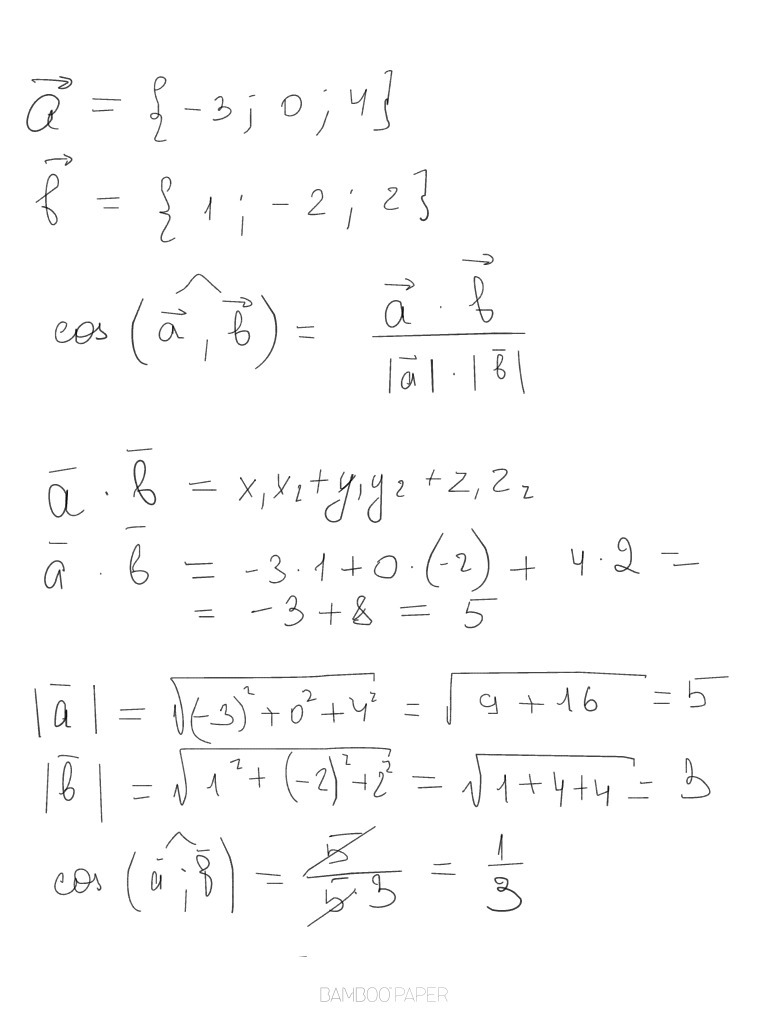 a⃗ = {-3; 0; 4}
b⃗ = {1; -2; 2}
cos (a⃗, b⃗) = a⃗ · b⃗ / |a⃗| · |b̄|
ā · b̄ = x₁x₂ + y₁y₂ + z₁z₂
ā · b̄ = -3·1 + 0·(-2) + 4·2 =
= -3 + 8 = 5
|ā| = √((-3)² + 0² + 4²) = √(9 + 16) = 5
|b̄| = √(1² + (-2)² + 2²) = √(1 + 4 + 4) = 3
cos (ā; b̄) = 5 / 5·3 = 1/3
BAMBOO PAPER